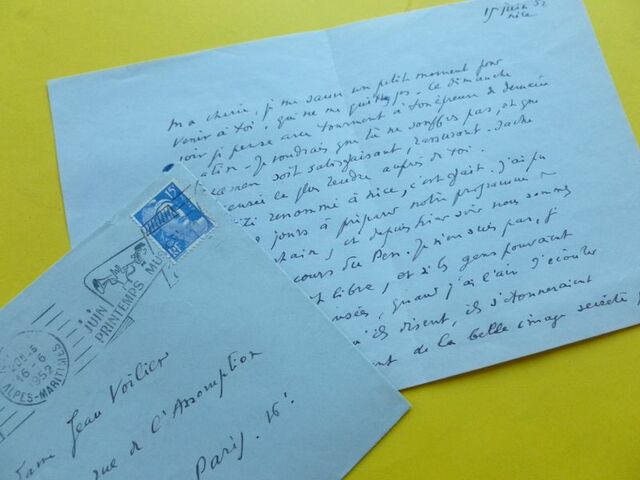 15 juin 52
Nice
Ma cherie, je me sauve un petit moment pour
venir à toi, qui ne me quittes pas. Ce dimanche
soir je pense avec tourment à ton épreuve de demain
Je voudrais que tu ne souffres pas, et que
soit satisfaisant, rassurant. Sache
le plus tendre auprès de toi.
renommé à Nice, c'est fait. J'ai pu
jours à préparer notre programme
et depuis hier soir nous sommes
cours du Pen. Je n'en suis pas, je
libre, et si les gens pouvaient
quand j'ai l'air d'écouter
qu'ils disent, ils s'étonneraient
de la belle image secrète
15
RF
JUIN
PRINTEMPS MUS
16-6
1952
ALPES-MARITIMES
Jean Voilier
rue de l'Assomption
Paris. 16e